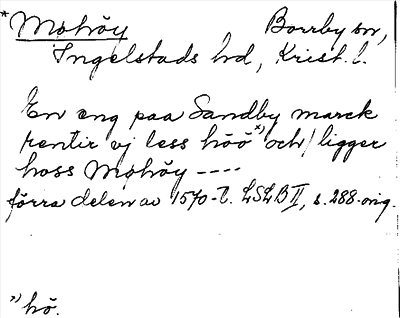 *Mohöy Borrby sn,
Ingelstads hd, Krist. l.
En eng paa Sandby marck
rentir vj less höö *) och ligger
hoss Mohöy ----
förra delen av 1570-t. LSLB II, s. 288. orig.
*) hö.